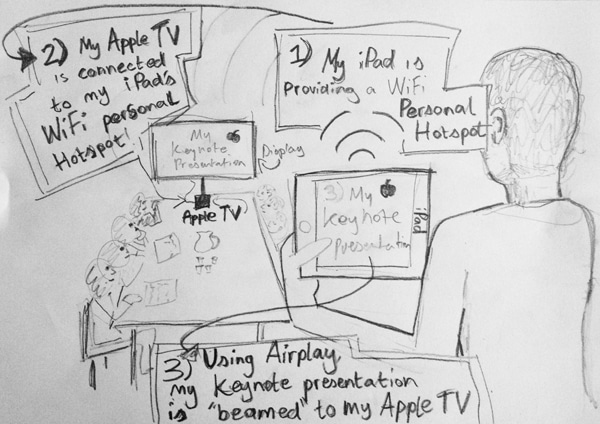 1) My iPad is
Providing a WiFi
Personal
Hotspot
2) My Apple TV
is connected
to my iPad's
WiFi personal
Hotspot!
My
Keynote
Presentation
Display
Apple TV
3) My
Keynote
presentation
iPad
3) Using Airplay,
my Keynote presentation
is "beamed" to my Apple TV